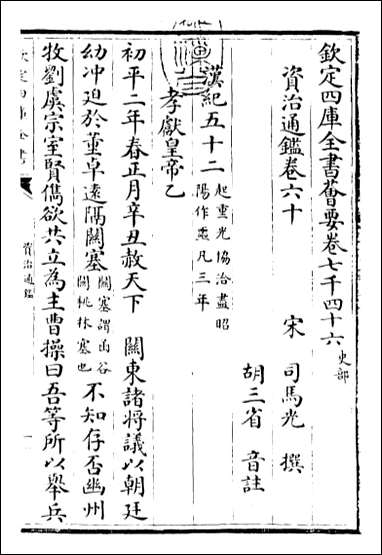 欽定四庫全書薈要卷七千四十六 史部
資治通鑑卷六十
宋 司馬光 撰
胡三省 音註
漢紀五十二 起重光協洽盡昭陽作噩凡三年
孝獻皇帝乙
初平二年春正月辛丑赦天下 關東諸將議以朝廷
幼沖迫於董卓遠隔關塞 關塞謂函谷關桃林塞也 不知存否幽州
牧劉虞宗室賢儁欲共立為主曹操曰吾等所以舉兵
資治通鑑
一